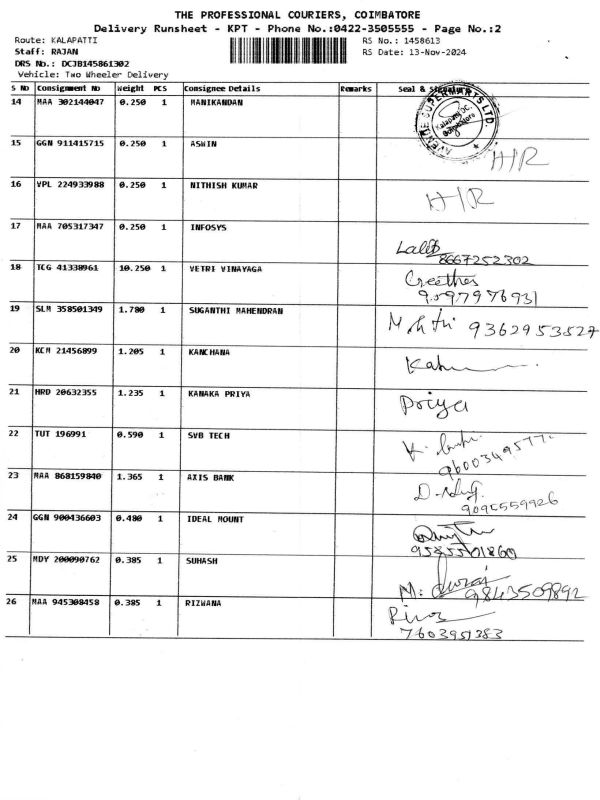 THE PROFESSIONAL COURIERS, COIMBATORE
Delivery Runsheet - KPT - Phone No.:0422-3505555 - Page No.:2
Route: KALAPATTI RS No.: 1458613
Staff: RAJAN RS Date: 13-Nov-2024
DRS No.: DCJB145861302
Vehicle: Two Wheeler Delivery
S No Consignment No Weight PCS Consignee Details Remarks Seal & Signature
14 MAA 302144047 0.250 1 MANIKANDAN
AVENUE SUPERMARTS LTD.
Kalapatti DC,
Coimbatore
15 GGN 911415715 0.250 1 ASWIN H/R
16 VPL 224933988 0.250 1 NITHISH KUMAR H/R
17 MAA 705317347 0.250 1 INFOSYS
8667252302
18 TCG 41338961 10.250 1 VETRI VINAYAGA
19 SLM 358501349 1.780 1 SUGANTHI MAHENDRAN 9362953527
20 KCM 21456899 1.205 1 KANCHANA
21 HRD 20632355 1.235 1 KANAKA PRIYA Priya
22 TUT 196991 0.590 1 SVB TECH
23 MAA 868159840 1.365 1 AXIS BANK
9095559926
24 GGN 900436603 0.480 1 IDEAL MOUNT
25 MDY 200090762 0.385 1 SUHASH
9843509892
26 MAA 945308458 0.385 1 RIZWANA
7603951383